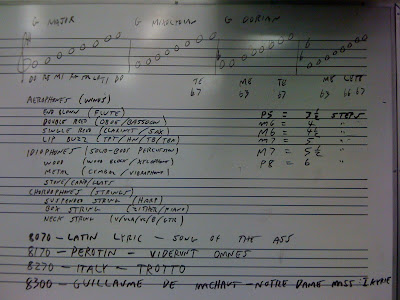 G MAJOR G MIXOLYDIAN G DORIAN
DO RE MI FA SO LA TI DO TE ME TE ME LE TE
b7 b3 b7 b3 b6 b7
AEROPHONES (WINDS)
END BLOWN (FLUTE) P5 = 3 ½ STEPS
DOUBLE REED (OBOE/BASSOON) m6 = 4 "
SINGLE REED (CLARINET/SAX) M6 = 4 ½ "
LIP BUZZ (TPT/HN/TB/TBA) m7 = 5 "
IDIOPHONES (SOLID-BODY PERCUSSION) M7 = 5 ½ "
WOOD (WOOD BLOCK/XYLOPHONE) P8 = 6 "
METAL (CYMBAL/VIBRAPHONE)
CHORDOPHONES (STRINGS)
SUSPENDED STRING (HARP)
BOX STRING (ZITHER/PIANO)
NECK STRING
8070 - LATIN LYRIC - SONG OF THE ASS
8170 - PEROTIN - VIDERUNT OMNES
8270 - ITALY - TROTTO
8300 - GUILLAUME DE MACHAUT - NOTRE DAME MASS: KYRIE